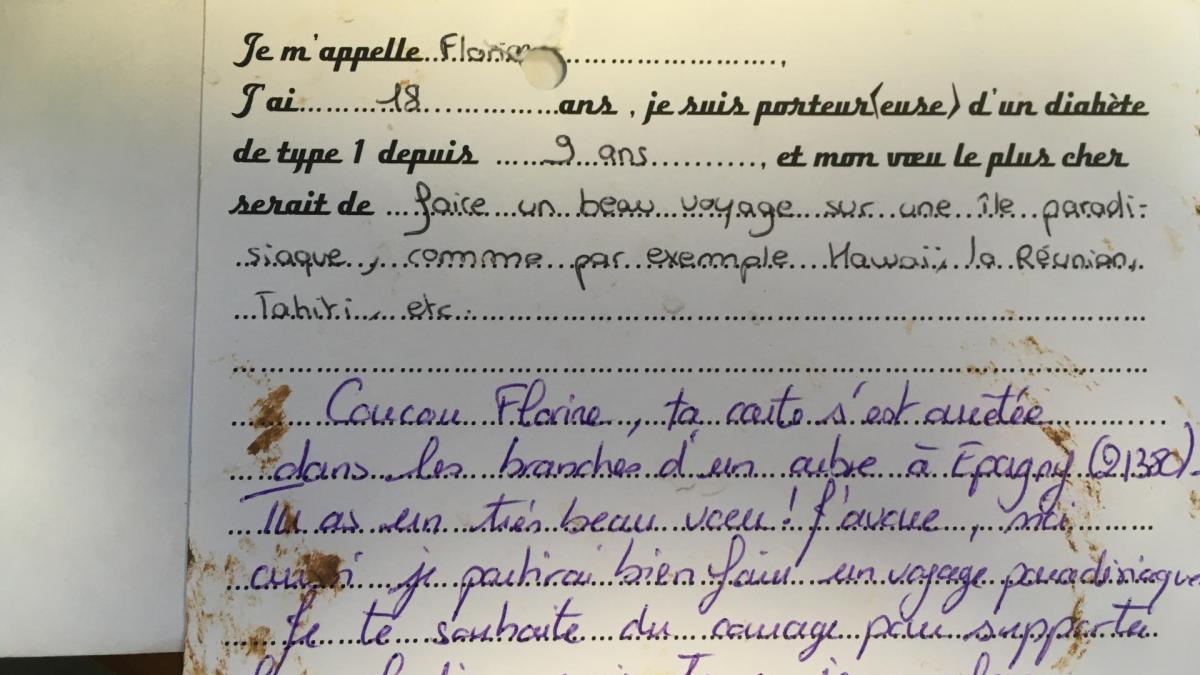 Je m'appelle..Florine..............................,
J'ai.........18...............ans , je suis porteur(euse) d'un diabète
de type 1 depuis ......9 ans..........., et mon vœu le plus cher
serait de ...faire un beau voyage sur une île paradi-
siaque, comme par exemple Hawaii, la Réunion,
Tahiti, etc.
Coucou Florine, ta carte s'est arrêtée
dans les branches d'un arbre à Epagny (21380).
Tu as un très beau vœu! J'avoue, moi
aussi je partirai bien faire un voyage paradisiaque
Je te souhaite du courage pour supporter